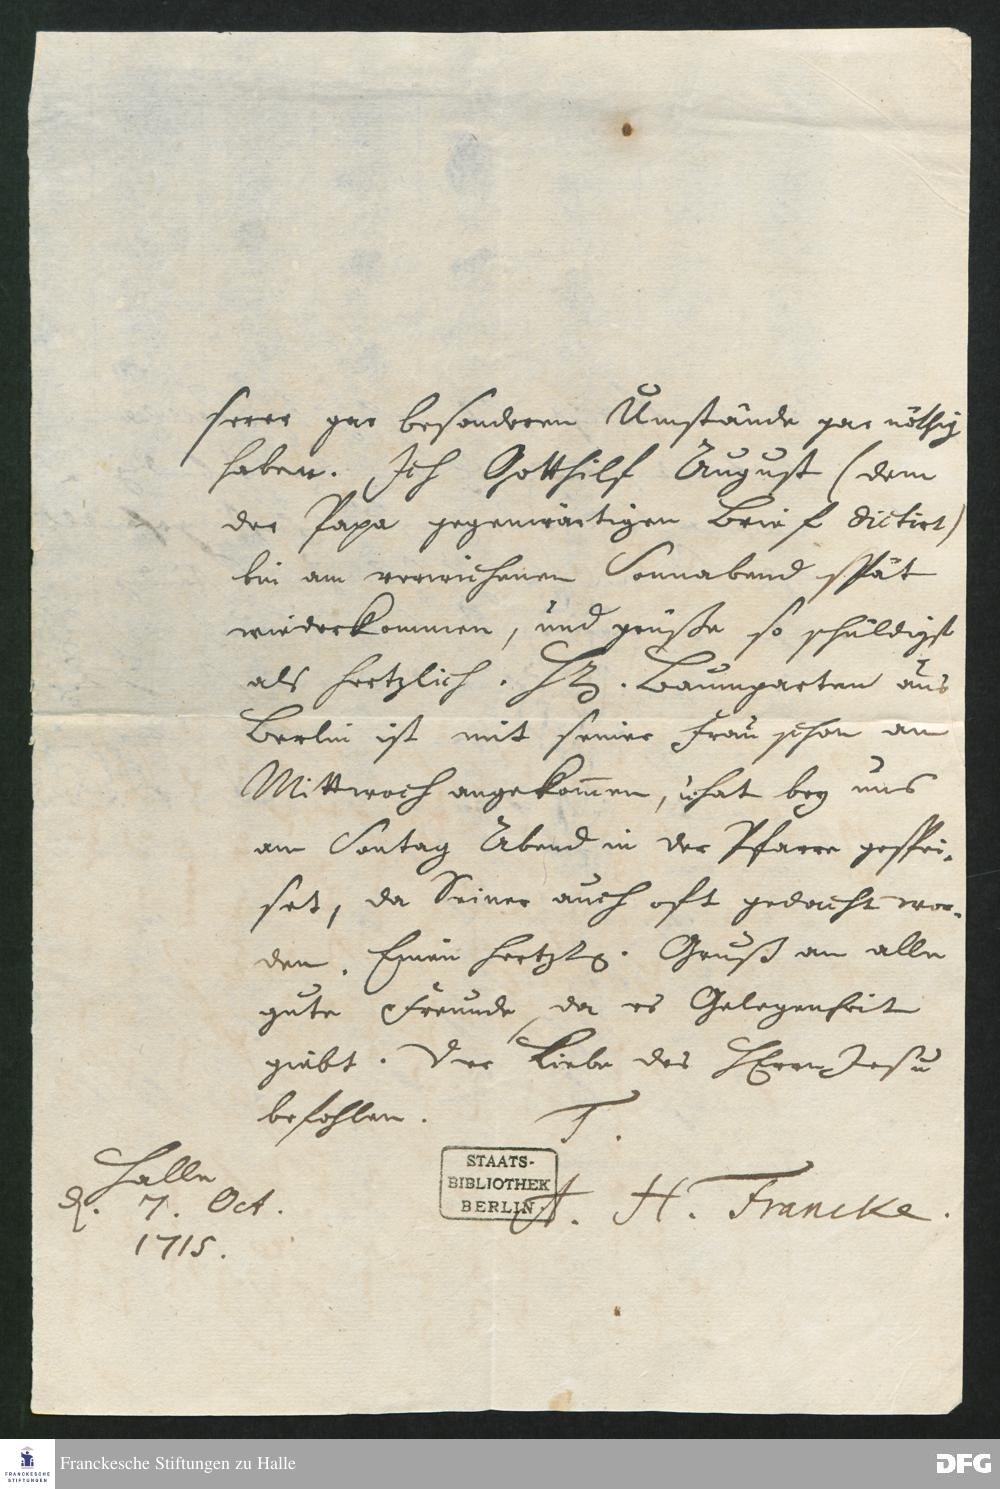 serer gar besonderen Umstände gar nöthig
haben. Ich Gotthilf August (dem
der Papa gegenwärtigen Brief dictirt)
bin am verwichenen Sonnabend spät
wiederkommen, und grüße so schuldigst
als hertzlich. Hr. Baumgarten aus
Berlin ist mit seiner Frau schon am
Mittwoch angekom̄en, hat bey uns
am Sontag Abend in der Pfarre gespei-
set, da Seiner auch oft gedacht wor-
den. Einen hertzl. Gruß an alle
gute Freunde, da es Gelegenheit
giebt. Der Liebe des HErrn Jesu
befohlen. T.
Halle
d. 7. Oct.
1715.
A. H. Francke.
STAATS-
BIBLIOTHEK
BERLIN.
FRANCKESCHE
STIFTUNGEN
Franckesche Stiftungen zu Halle
DFG